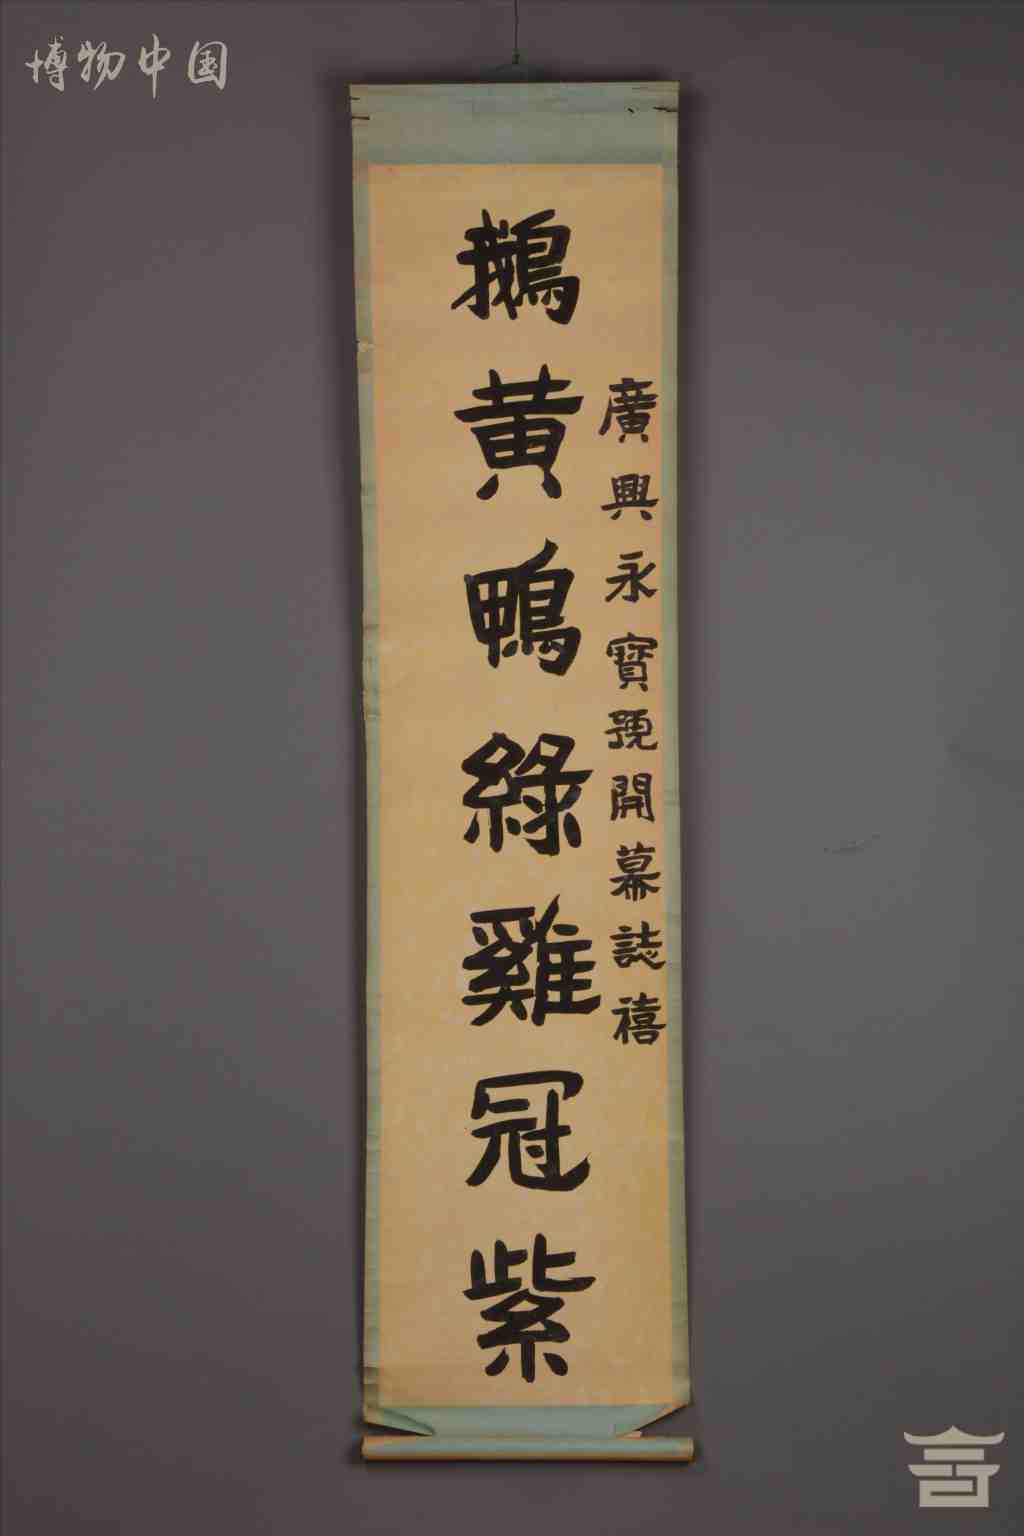 博物中国
廣興永寶號開幕誌禧
鵝黃鴨綠雞冠紫